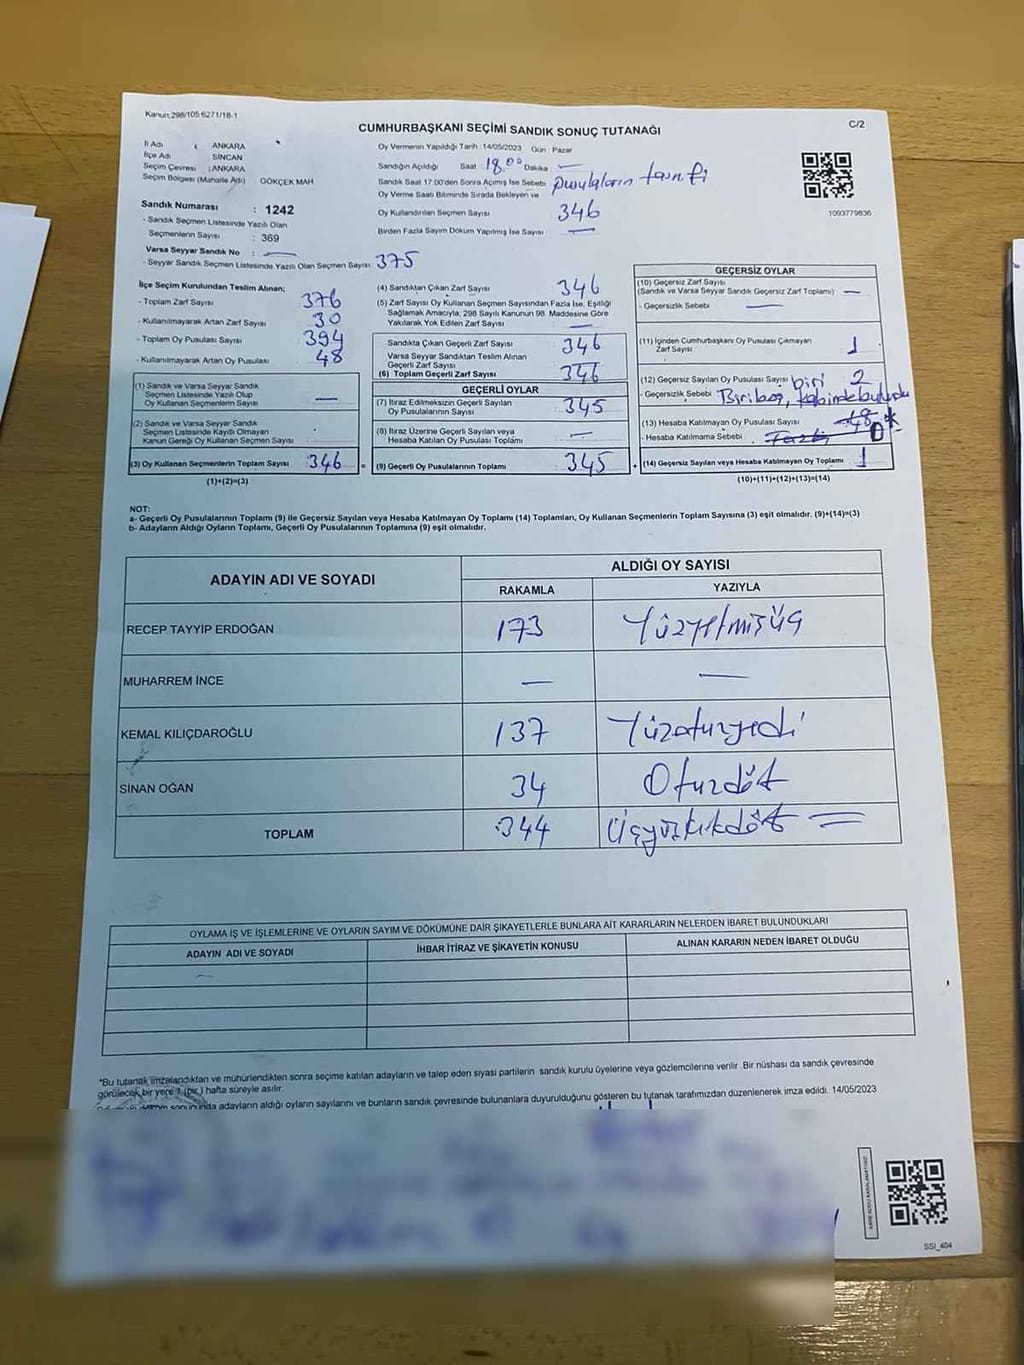 Kanun:298/105 6271/18-1
C/2
CUMHURBAŞKANI SEÇİMİ SANDIK SONUÇ TUTANAĞI
İl Adı : ANKARA
İlçe Adı SİNCAN
Seçim Çevresi : ANKARA
Seçim Bölgesi (Mahalle Adı) GÖKÇEK MAH
Sandık Numarası : 1242
- Sandık Seçmen Listesinde Yazılı Olan
Seçmenlerin Sayısı : 369
Varsa Seyyar Sandık No : —
- Seyyar Sandık Seçmen Listesinde Yazılı Olan Seçmen Sayısı: 375
Oy Vermenin Yapıldığı Tarih :14/05/2023 Gün : Pazar
Sandığın Açıldığı Saat 18.00 Dakika —
Sandık Saat 17:00'den Sonra Açımış İse Sebebi pusulaların tasnifi
Oy Verme Saati Bitiminde Sırada Bekleyen ve
Oy Kullandırılan Seçmen Sayısı 346
Birden Fazla Sayım Döküm Yapılmış İse Sayısı —
1093779836
İlçe Seçim Kurulundan Teslim Alınan;
- Toplam Zarf Sayısı 376
- Kullanılmayarak Artan Zarf Sayısı 30
- Toplam Oy Pusulası Sayısı 394
- Kullanılmayarak Artan Oy Pusulası 48
(1) Sandık ve Varsa Seyyar Sandık
Seçmen Listesinde Yazılı Olup
Oy Kullanan Seçmenlerin Sayısı —
(2) Sandık ve Varsa Seyyar Sandık
Seçmen Listesinde Kayıtlı Olmayan
Kanun Gereği Oy Kullanan Seçmen Sayısı
(3) Oy Kullanan Seçmenlerin Toplam Sayısı 346 =
(1)+(2)=(3)
(4) Sandıktan Çıkan Zarf Sayısı 346
(5) Zarf Sayısı Oy Kullanan Seçmen Sayısından Fazla İse, Eşitliği
Sağlamak Amacıyla, 298 Sayılı Kanunun 98. Maddesine Göre
Yakılarak Yok Edilen Zarf Sayısı —
Sandıkta Çıkan Geçerli Zarf Sayısı 346
Varsa Seyyar Sandıktan Teslim Alınan
Geçerli Zarf Sayısı
(6) Toplam Geçerli Zarf Sayısı 346
GEÇERLİ OYLAR
(7) İtiraz Edilmeksizin Geçerli Sayılan
Oy Pusulalarının Sayısı 345
(8) İtiraz Üzerine Geçerli Sayılan veya
Hesaba Katılan Oy Pusulası Toplamı —
(9) Geçerli Oy Pusulalarının Toplamı 345 +
GEÇERSİZ OYLAR
(10) Geçersiz Zarf Sayısı
(Sandık ve Varsa Seyyar Sandık Geçersiz Zarf Toplamı) —
- Geçersizlik Sebebi —
(11) İçinden Cumhurbaşkanı Oy Pusulası Çıkmayan
Zarf Sayısı 1
(12) Geçersiz Sayılan Oy Pusulası Sayısı biri 2
- Geçersizlik Sebebi Biri boş, kabinde bulundu
(13) Hesaba Katılmayan Oy Pusulası Sayısı 48 *
- Hesaba Katılmama Sebebi 0
(14) Geçersiz Sayılan veya Hesaba Katılmayan Oy Toplamı 1
(10)+(11)+(12)+(13)=(14)
NOT:
a- Geçerli Oy Pusulalarının Toplamı (9) ile Geçersiz Sayılan veya Hesaba Katılmayan Oy Toplamı (14) Toplamları, Oy Kullanan Seçmenlerin Toplam Sayısına (3) eşit olmalıdır. (9)+(14)=(3)
b- Adayların Aldığı Oyların Toplamı, Geçerli Oy Pusulalarının Toplamına (9) eşit olmalıdır.
ADAYIN ADI VE SOYADI
ALDIĞI OY SAYISI
RAKAMLA YAZIYLA
RECEP TAYYİP ERDOĞAN 173 Yüzyetmişüç
MUHARREM İNCE — —
KEMAL KILIÇDAROĞLU 137 Yüzotuzyedi
SİNAN OĞAN 34 Otuzdört
TOPLAM 344 Üçyüzkırkdört =
OYLAMA İŞ VE İŞLEMLERİNE VE OYLARIN SAYIM VE DÖKÜMÜNE DAİR ŞİKAYETLERLE BUNLARA AİT KARARLARIN NELERDEN İBARET BULUNDUKLARI
ADAYIN ADI VE SOYADI İHBAR İTİRAZ VE ŞİKAYETİN KONUSU ALINAN KARARIN NEDEN İBARET OLDUĞU
—
*Bu tutanak imzalandıktan ve mühürlendikten sonra seçime katılan adayların ve talep eden siyasi partilerin sandık kurulu üyelerine veya gözlemcilerine verilir. Bir nüshası da sandık çevresinde
görülecek bir yere 1 (bir) hafta süreyle asılır.
sonucunda adayların aldığı oyların sayılarını ve bunların sandık çevresinde bulunanlara duyurulduğunu gösteren bu tutanak tarafımızdan düzenlenerek imza edildi. 14/05/2023
SSI_404